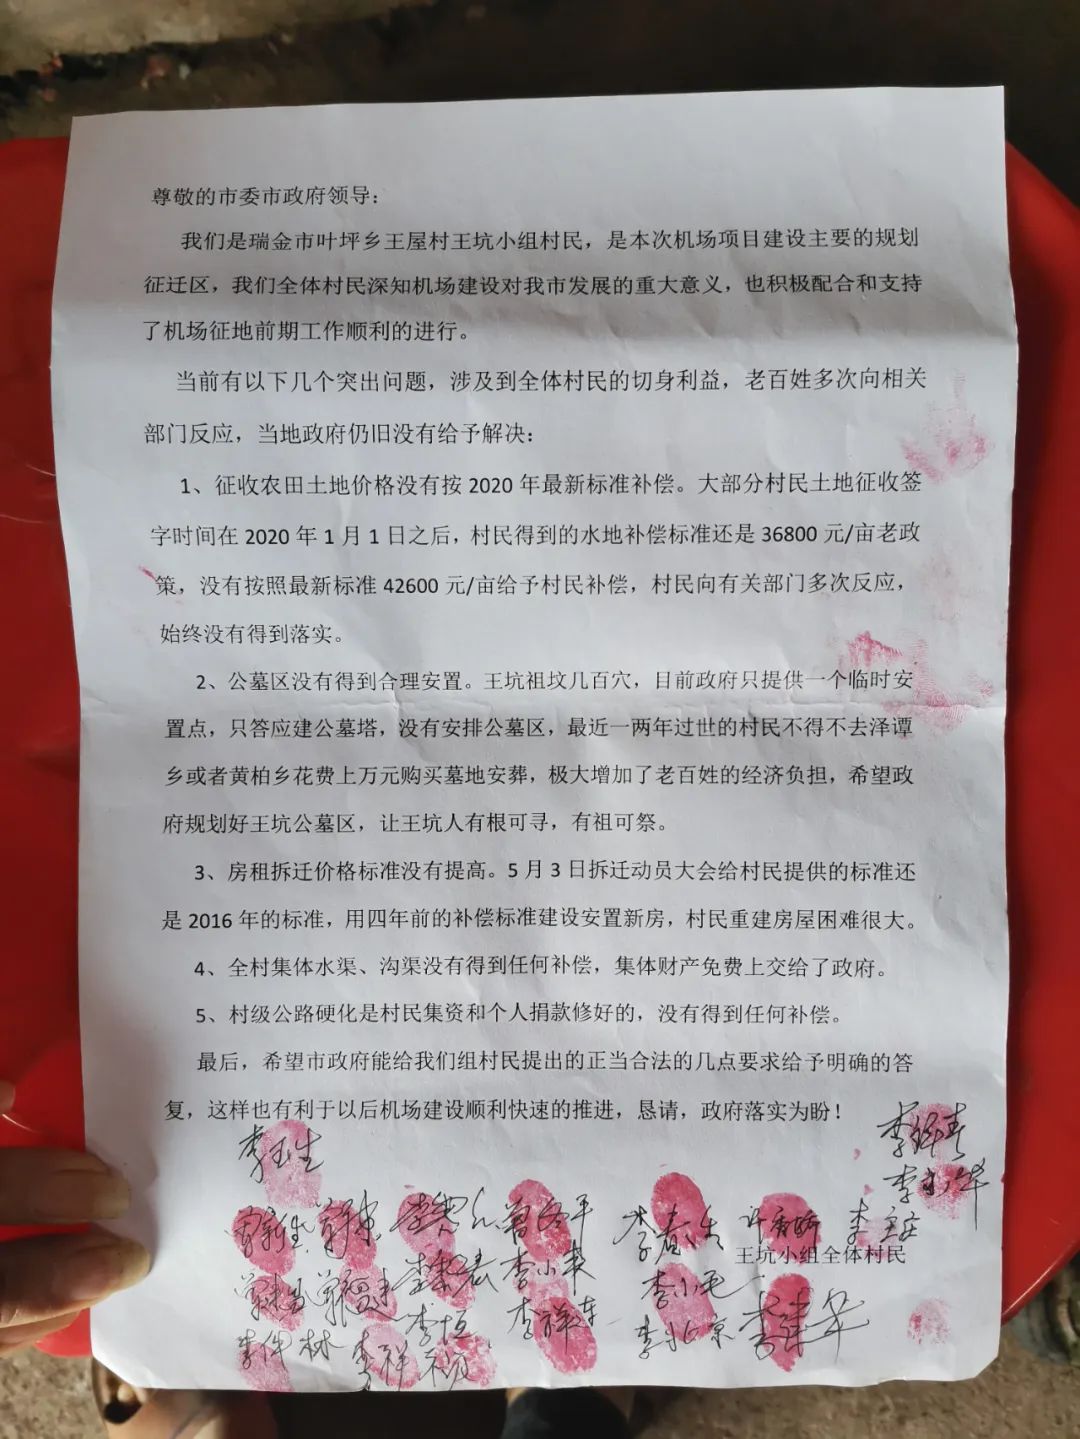 尊敬的市委市政府领导：
我们是瑞金市叶坪乡王屋村王坑小组村民，是本次机场项目建设主要的规划
征迁区，我们全体村民深知机场建设对我市发展的重大意义，也积极配合和支持
了机场征地前期工作顺利的进行。
当前有以下几个突出问题，涉及到全体村民的切身利益，老百姓多次向相关
部门反应，当地政府仍旧没有给予解决：
1、征收农田土地价格没有按 2020 年最新标准补偿。大部分村民土地征收签
字时间在 2020 年 1 月 1 日之后，村民得到的水地补偿标准还是 36800 元/亩老政
策，没有按照最新标准 42600 元/亩给予村民补偿，村民向有关部门多次反应，
始终没有得到落实。
2、公墓区没有得到合理安置。王坑祖坟几百穴，目前政府只提供一个临时安
置点，只答应建公墓塔，没有安排公墓区，最近一两年过世的村民不得不去泽谭
乡或者黄柏乡花费上万元购买墓地安葬，极大增加了老百姓的经济负担，希望政
府规划好王坑公墓区，让王坑人有根可寻，有祖可祭。
3、房租拆迁价格标准没有提高。5 月 3 日拆迁动员大会给村民提供的标准还
是 2016 年的标准，用四年前的补偿标准建设安置新房，村民重建房屋困难很大。
4、全村集体水渠、沟渠没有得到任何补偿，集体财产免费上交给了政府。
5、村级公路硬化是村民集资和个人捐款修好的，没有得到任何补偿。
最后，希望市政府能给我们组村民提出的正当合法的几点要求给予明确的答
复，这样也有利于以后机场建设顺利快速的推进，恳请，政府落实为盼！
李玉生
王坑小组全体村民
李小毛
李恒
李北京